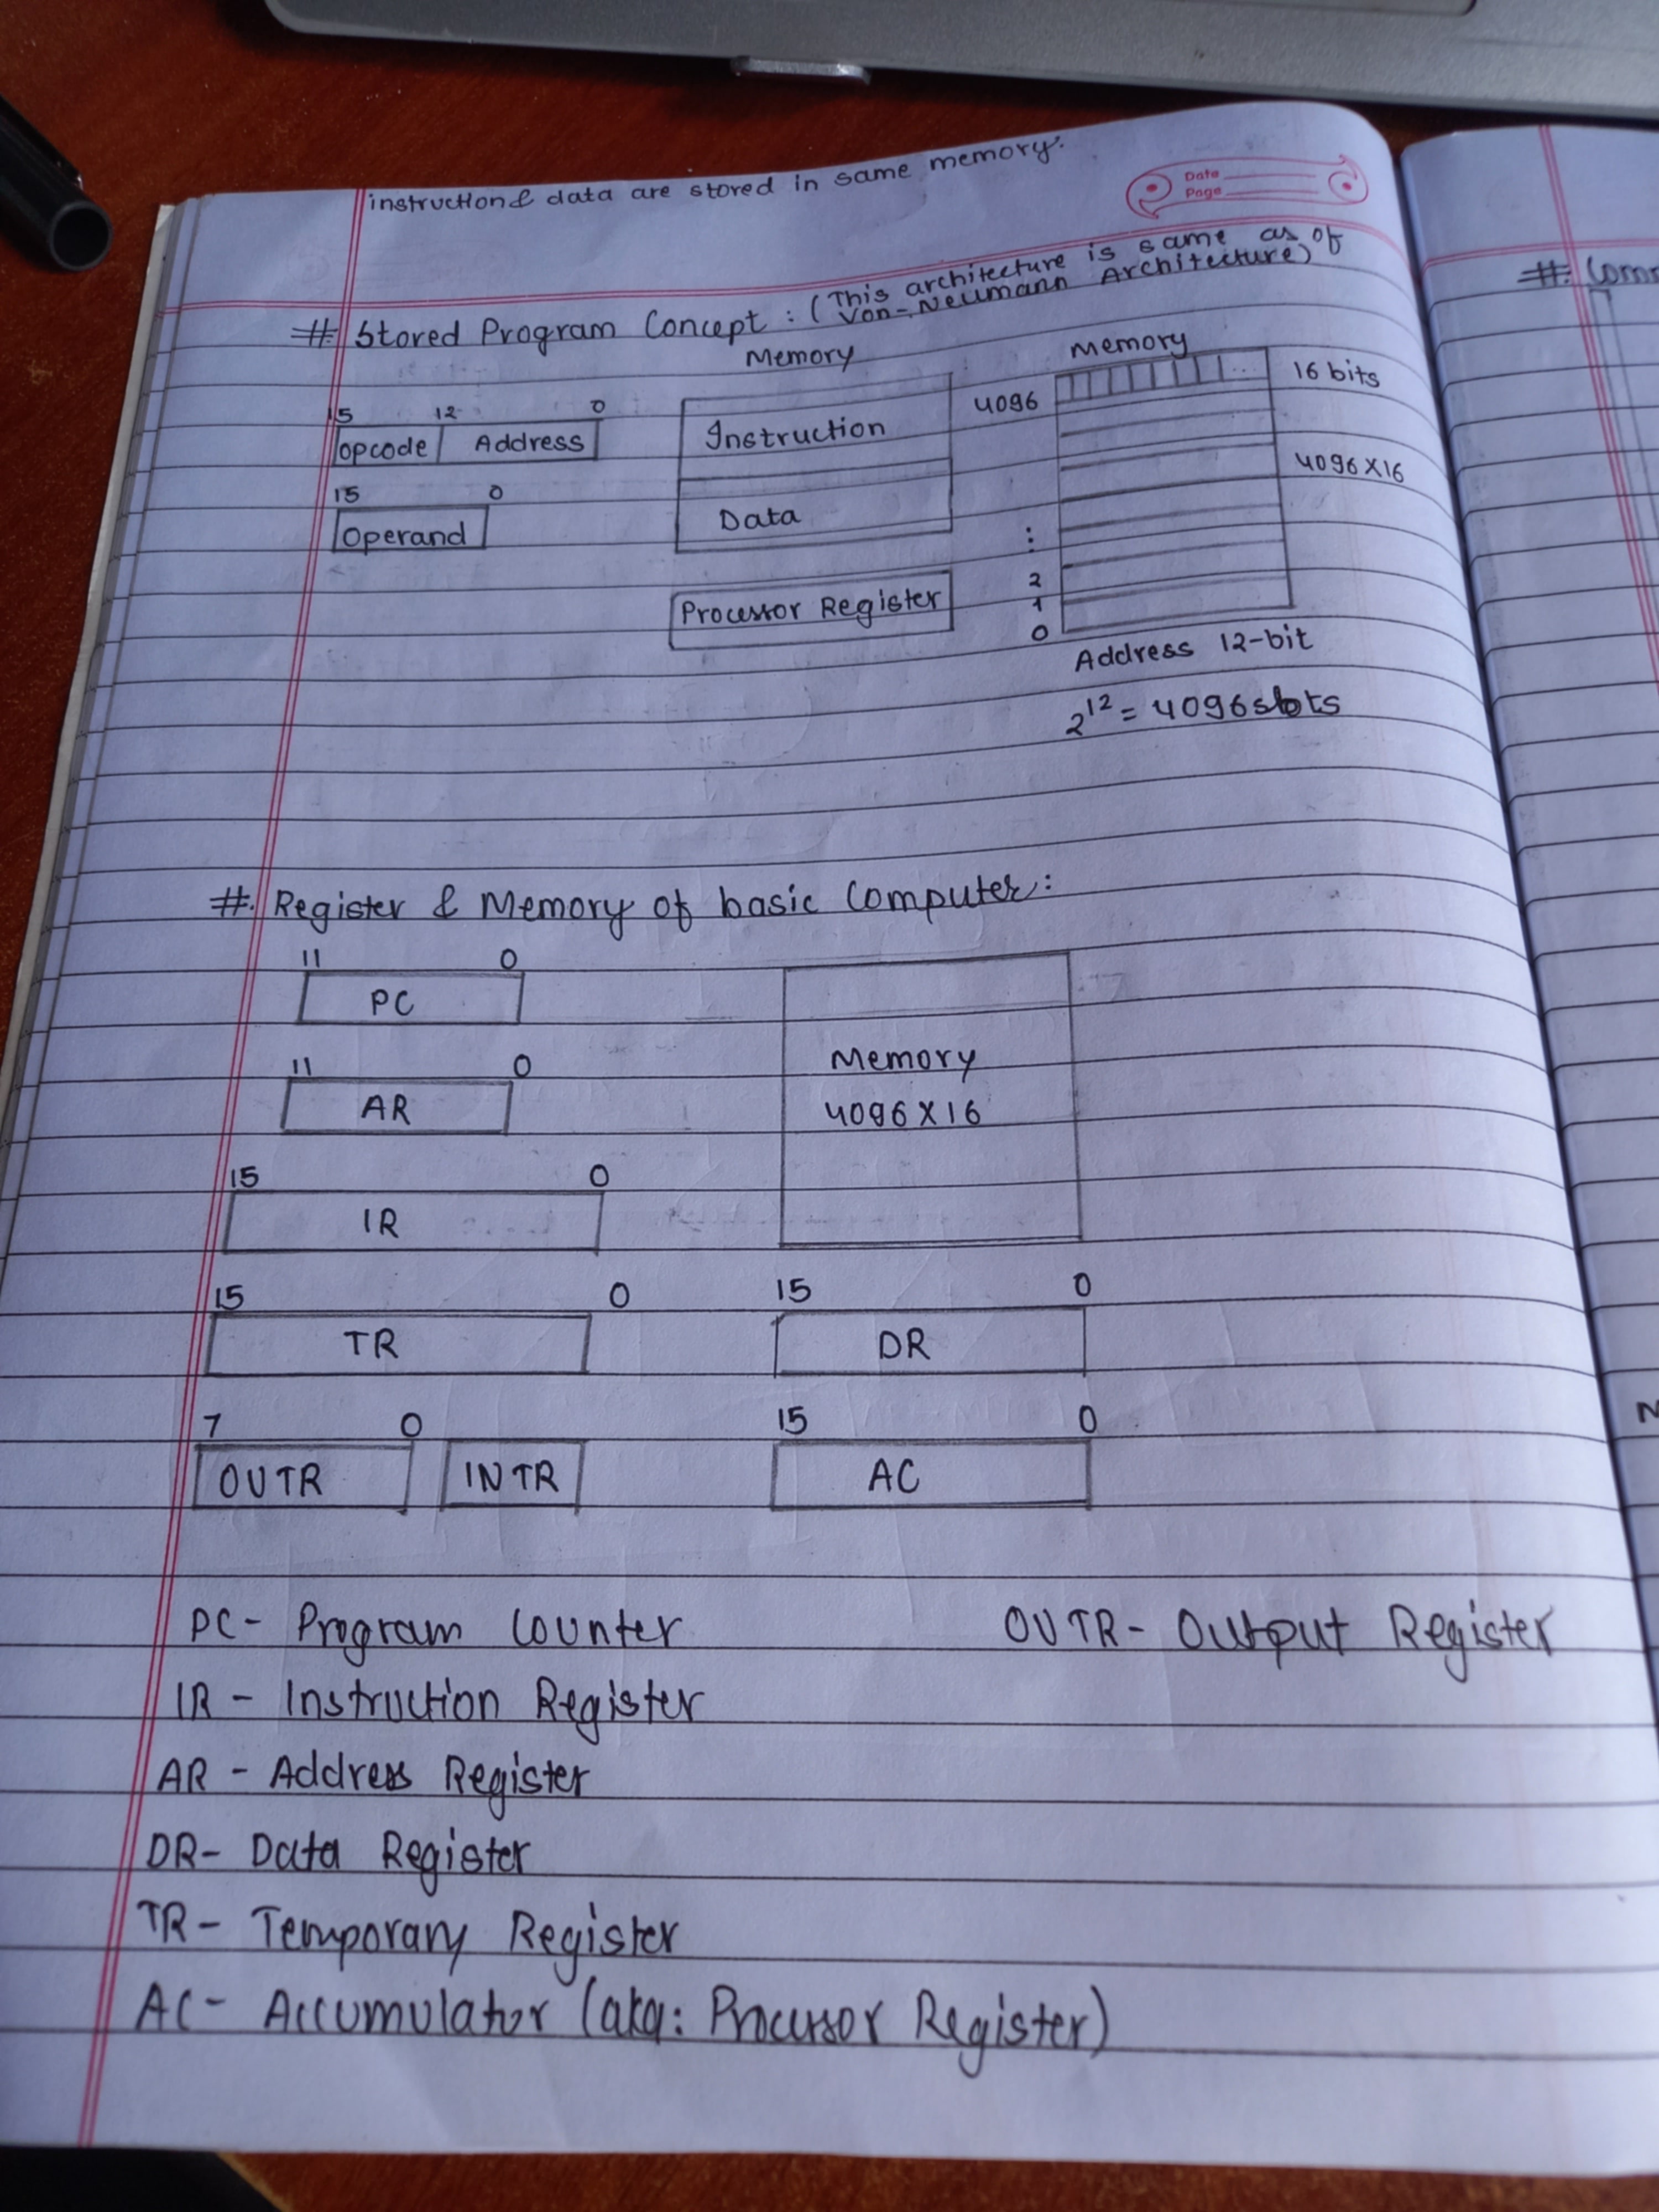 instruction & data are stored in same memory.
Date
Page
# Stored Program Concept : (This architecture is same as of
Von-Neumann Architecture)
Memory
Memory
15 12 0
opcode Address
15 0
Operand
Instruction
Data
Processor Register
4096
16 bits
4096X16
:
2
1
0
Address 12-bit
2^12 = 4096 slots
#. Register & Memory of basic Computer:
11 0
PC
11 0
AR
Memory
4096 X 16
15 0
IR
15 0
TR
15 0
DR
7 0
OUTR
INTR
15 0
AC
PC- Program Counter
OUTR- Output Register
IR - Instruction Register
AR - Address Register
DR- Data Register
TR- Temporary Register
AC- Accumulator (aka: Processor Register)
#